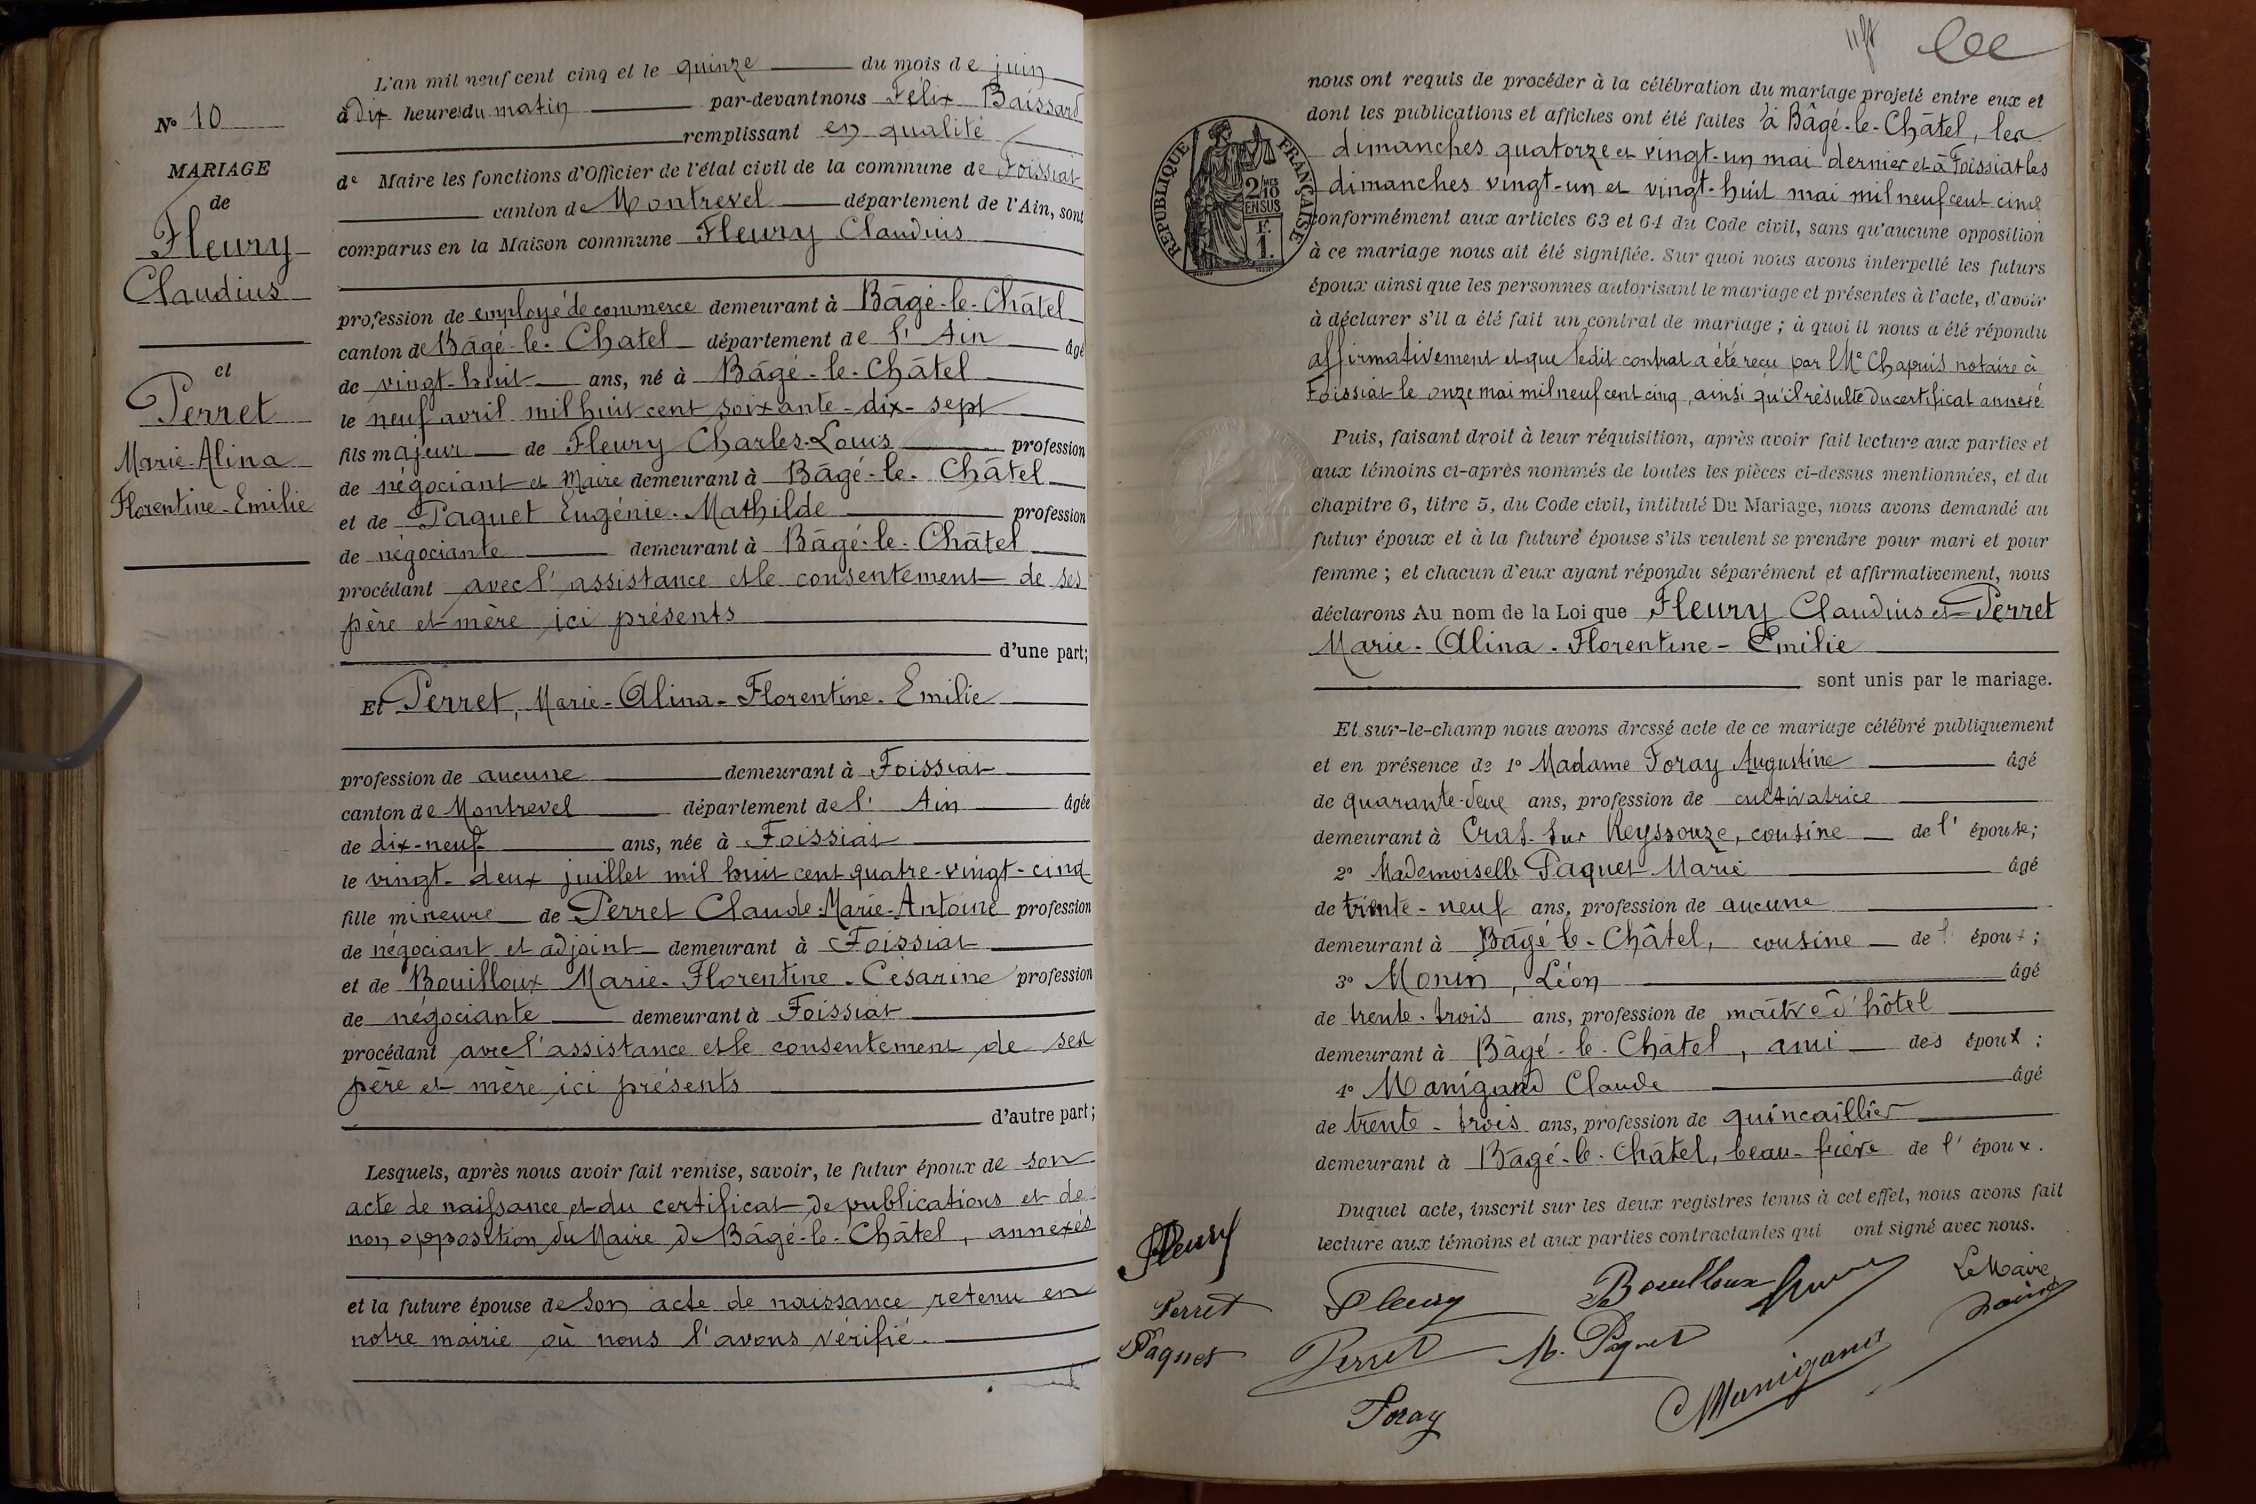 L'an mil neuf cent cinq et le quinze du mois de juin
à dix heures du matin par-devant nous Félix Baissard
remplissant en qualité
de Maire les fonctions d'Officier de l'état civil de la commune de Foissiat
canton de Montrevel département de l'Ain, sont
comparus en la Maison commune Fleury Claudius
profession de employé de commerce demeurant à Bâgé-le-Châtel
canton de Bâgé-le-Chatel département de l'Ain âgé
de vingt-huit ans, né à Bâgé-le-Châtel
le neuf avril mil huit cent soixante-dix-sept
fils majeur de Fleury Charles-Louis profession
de négociant et Maire demeurant à Bâgé-le-Châtel
et de Paquet Eugénie-Mathilde profession
de négociante demeurant à Bâgé-le-Châtel
procédant avec l'assistance et le consentement de ses
père et mère ici présents
d'une part;
Et Perret, Marie-Alina-Florentine-Emilie
profession de aucune demeurant à Foissiat
canton de Montrevel département de l'Ain âgée
de dix-neuf ans, née à Foissiat
le vingt-deux juillet mil huit cent quatre-vingt-cinq
fille mineure de Perret Claude-Marie-Antoine profession
de négociant et adjoint demeurant à Foissiat
et de Bouilloux Marie-Florentine-Césarine profession
de négociante demeurant à Foissiat
procédant avec l'assistance et le consentement de ses
père et mère ici présents
d'autre part;
Lesquels, après nous avoir fait remise, savoir, le futur époux de son
acte de naissance et du certificat de publications et de
non opposition du Maire de Bâgé-le-Châtel, annexés
et la future épouse de son acte de naissance retenu en
notre mairie où nous l'avons vérifié.
N° 10
MARIAGE
de
Fleury
Claudius
et
Perret
Marie-Alina
Florentine-Emilie
nous ont requis de procéder à la célébration du mariage projeté entre eux et
dont les publications et affiches ont été faites à Bâgé-le-Châtel, les
dimanches quatorze et vingt-un mai dernier et à Foissiat les
dimanches vingt-un et vingt-huit mai mil neuf cent cinq
conformément aux articles 63 et 64 du Code civil, sans qu'aucune opposition
à ce mariage nous ait été signifiée. Sur quoi nous avons interpellé les futurs
époux ainsi que les personnes autorisant le mariage et présentes à l'acte, d'avoir
à déclarer s'il a été fait un contrat de mariage ; à quoi il nous a été répondu
affirmativement et que ledit contrat a été reçu par Me Chapuis notaire à
Foissiat le onze mai mil neuf cent cinq, ainsi qu'il résulte du certificat annexé
Puis, faisant droit à leur réquisition, après avoir fait lecture aux parties et
aux témoins ci-après nommés de toutes les pièces ci-dessus mentionnées, et du
chapitre 6, titre 5, du Code civil, intitulé Du Mariage, nous avons demandé au
futur époux et à la future épouse s'ils veulent se prendre pour mari et pour
femme ; et chacun d'eux ayant répondu séparément et affirmativement, nous
déclarons Au nom de la Loi que Fleury Claudius et Perret
Marie-Alina-Florentine-Emilie
sont unis par le mariage.
Et sur-le-champ nous avons dressé acte de ce mariage célébré publiquement
et en présence de 1° Madame Foray Augustine âgé
de quarante-deux ans, profession de cultivatrice
demeurant à Cras-sur Reyssouze, cousine de l'épouse;
2° Mademoiselle Paquet Marie âgé
de trente-neuf ans, profession de aucune
demeurant à Bâgé-le-Châtel, cousine de l'époux;
3° Monin, Léon âgé
de trente-trois ans, profession de maître d'hôtel
demeurant à Bâgé-le-Châtel, ami des époux;
4° Manigand Claude âgé
de trente-trois ans, profession de quincaillier
demeurant à Bâgé-le-Châtel, beau-frère de l'époux.
Duquel acte, inscrit sur les deux registres tenus à cet effet, nous avons fait
lecture aux témoins et aux parties contractantes qui ont signé avec nous.
Fleury
Fleury
Bouilloux
Le Maire
Perret
Paquet
Perret
M. Paquet
Manigand
Foray
RÉPUBLIQUE FRANÇAISE
2/10
EN SUS
1 F.